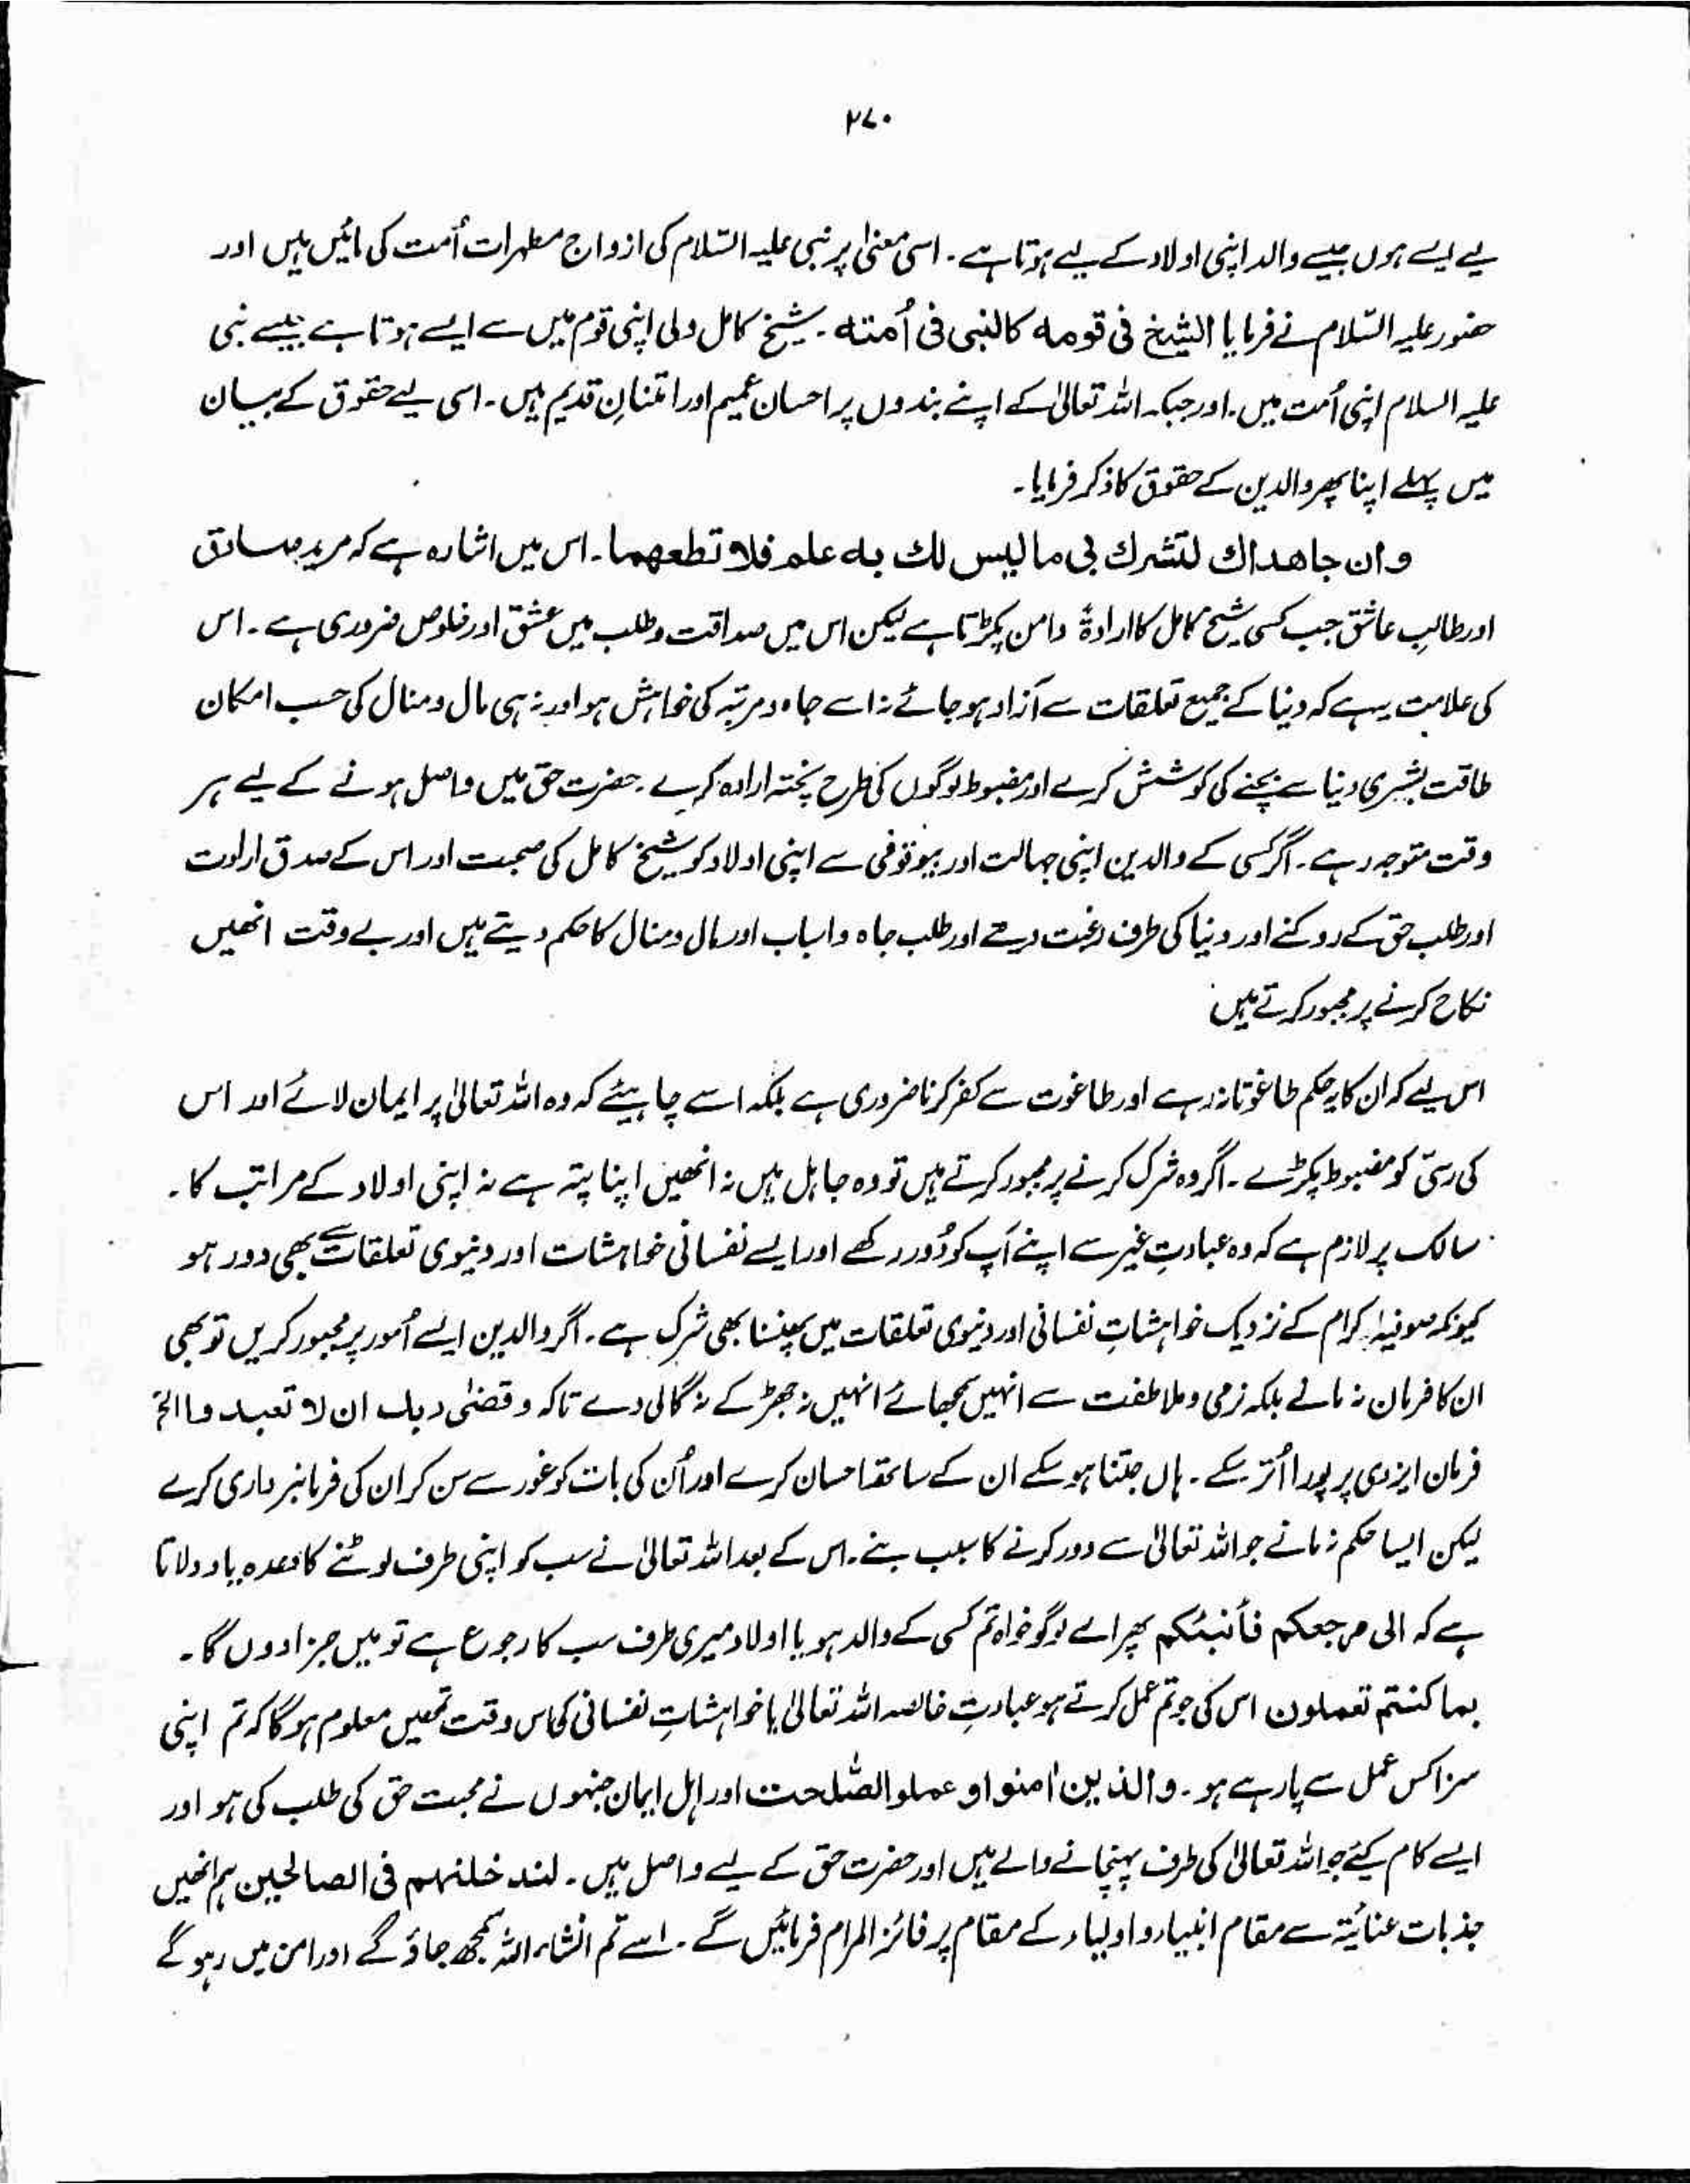 ۲۷۰
لیے ایسے ہوں جیسے والد اپنی اولاد کے لیے ہوتا ہے۔ اسی معنیٰ پر نبی علیہ السّلام کی ازواج مطہرات اُمت کی مائیں ہیں اور
حضور علیہ السّلام نے فرمایا الشیخ فی قومہ کالنبی فی اُمتہ۔ شیخ کامل ولی اپنی قوم میں سے ایسے ہوتا ہے جیسے نبی
علیہ السلام اپنی اُمت میں۔ اور جبکہ اللہ تعالیٰ کے اپنے بندوں پر احسان عمیم اور امتنانِ قدیم ہیں۔ اسی لیے حقوق کے بیان
میں پہلے اپنا پھر والدین کے حقوق کا ذکر فرمایا۔
و ان جاھداك لتشرك بی ما لیس لك بہ علم فلا تطعھما۔ اس میں اشارہ ہے کہ مرید صادق
اور طالبِ عاشق جب کسی شیخ کامل کا ارادۃً دامن پکڑتا ہے لیکن اس میں صداقت و طلب میں عشق اور خلوص ضروری ہے۔ اس
کی علامت یہ ہے کہ دنیا کے جمیع تعلقات سے آزاد ہو جائے نہ اسے جاہ و مرتبہ کی خواہش ہو اور نہ ہی مال و منال کی حسب امکان
طاقت بشری دنیا سے بچنے کی کوشش کرے اور مضبوط لوگوں کی طرح پختہ ارادہ کرے۔ حضرت حق میں واصل ہونے کے لیے ہر
وقت متوجہ رہے۔ اگر کسی کے والدین اپنی جہالت اور بیوقوفی سے اپنی اولاد کو شیخ کامل کی صحبت اور اس کے صدق ارادت
اور طلب حق کے روکنے اور دنیا کی طرف رغبت دیتے اور طلب جاہ و اسباب اور مال و منال کا حکم دیتے ہیں اور بے وقت انھیں
نکاح کرنے پر مجبور کرتے ہیں
اس لیے کہ ان کا یہ حکم طاغوتانہ ہے اور طاغوت سے کفر کرنا ضروری ہے بلکہ اسے چاہیئے کہ وہ اللہ تعالیٰ پر ایمان لائے اور اس
کی رسّی کو مضبوط پکڑے۔ اگر وہ شرک کرنے پر مجبور کرتے ہیں تو وہ جاہل ہیں نہ انھیں اپنا پتہ ہے نہ اپنی اولاد کے مراتب کا۔
سالک پر لازم ہے کہ وہ عبادتِ غیر سے اپنے آپ کو دُور رکھے اور ایسے نفسانی خواہشات اور دنیوی تعلقات سے بھی دور ہو
کیونکہ صوفیہ کرام کے نزدیک خواہشاتِ نفسانی اور دنیوی تعلقات میں پھنسنا بھی شرک ہے۔ اگر والدین ایسے اُمور پر مجبور کریں تو بھی
ان کا فرمان نہ مانے بلکہ نرمی و ملاطفت سے انہیں سمجھائے انہیں نہ جھڑکے نہ گالی دے تاکہ و قضیٰ ربك ان لا تعبدوا الخ
فرمان ایزدی پر پورا اُتر سکے۔ ہاں جتنا ہو سکے ان کے ساتھ احسان کرے اور اُن کی بات کو غور سے سن کر ان کی فرمانبرداری کرے
لیکن ایسا حکم نہ مانے جو اللہ تعالیٰ سے دور کرنے کا سبب بنے۔ اس کے بعد اللہ تعالیٰ نے سب کو اپنی طرف لوٹنے کا وعدہ یاد دلاتا
ہے کہ الی مرجعکم فأنبئکم پھر اے لوگو خواہ تم کسی کے والد ہو یا اولاد میری طرف سب کا رجوع ہے تو میں جزا دوں گا۔
بما کنتم تعملون اس کی جو تم عمل کرتے ہو عبادتِ خالصہ اللہ تعالیٰ یا خواہشاتِ نفسانی کی اس وقت تمھیں معلوم ہوگا کہ تم اپنی
سزا کس عمل سے پا رہے ہو۔ و الذین اٰمنوا و عملو الصّٰلحت اور اہل ایمان جنہوں نے محبت حق کی طلب کی ہو اور
ایسے کام کیئے جو اللہ تعالیٰ کی طرف پہنچانے والے ہیں اور حضرت حق کے لیے واصل ہیں۔ لندخلنہم فی الصالحین ہم انھیں
جذبات عنائیۃ سے مقام انبیاء و اولیاء کے مقام پر فائز المرام فرمائیں گے۔ اسے تم انشاء اللہ سمجھ جاؤ گے اور امن میں رہو گے